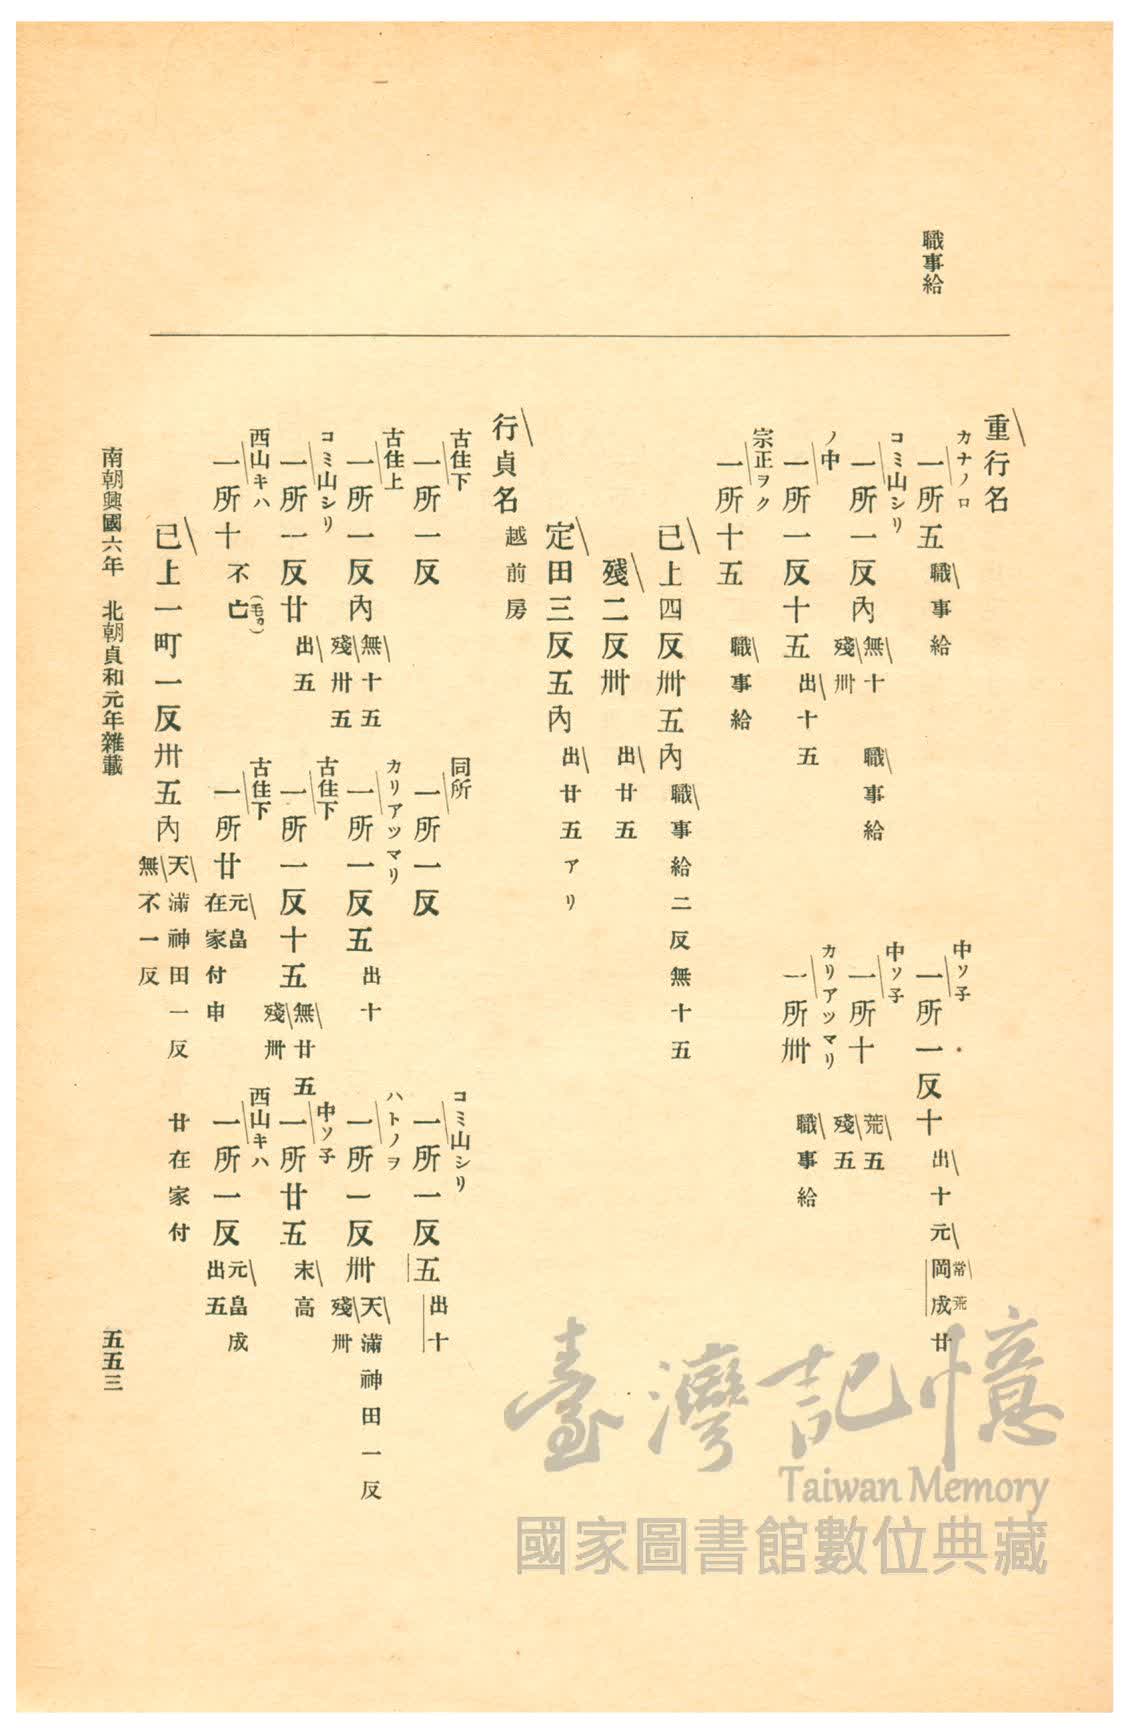 職事給
重行名
カナノロ
一所五 職事給
中ソ子
一所一反十 出十元岡成廿
常荒
コミ山シリ
一所一反內 無十 職事給
殘卅
中ソ子
一所十 荒五
殘五
ノ中
一所一反十五 出十五
カリアツマリ
一所卅 職事給
宗正ヲク
一所十五 職事給
已上四反卅五內 職事給二反無十五
殘二反卅 出廿五
定田三反五內 出廿五アリ
行貞名 越前房
古住下
一所一反
同所
一所一反
コミ山シリ
一所一反五 出十
古住上
一所一反內 無十五
殘卅五
カリアツマリ
一所一反五 出十
ハトノヲ
一所一反卅 天滿神田一反
殘卅
コミ山シリ
一所一反廿 出五
古住下
一所一反十五 無廿五
殘卅
中ソ子
一所廿五 末高
西山キハ
一所十 不亡
古住下
一所廿 元畠
在家付申
西山キハ
一所一反 元畠成
出五
已上一町一反卅五內 天滿神田一反 廿在家付
無不一反
南朝興國六年 北朝貞和元年雜載
五五三
臺灣記憶
Taiwan Memory
國家圖書館數位典藏